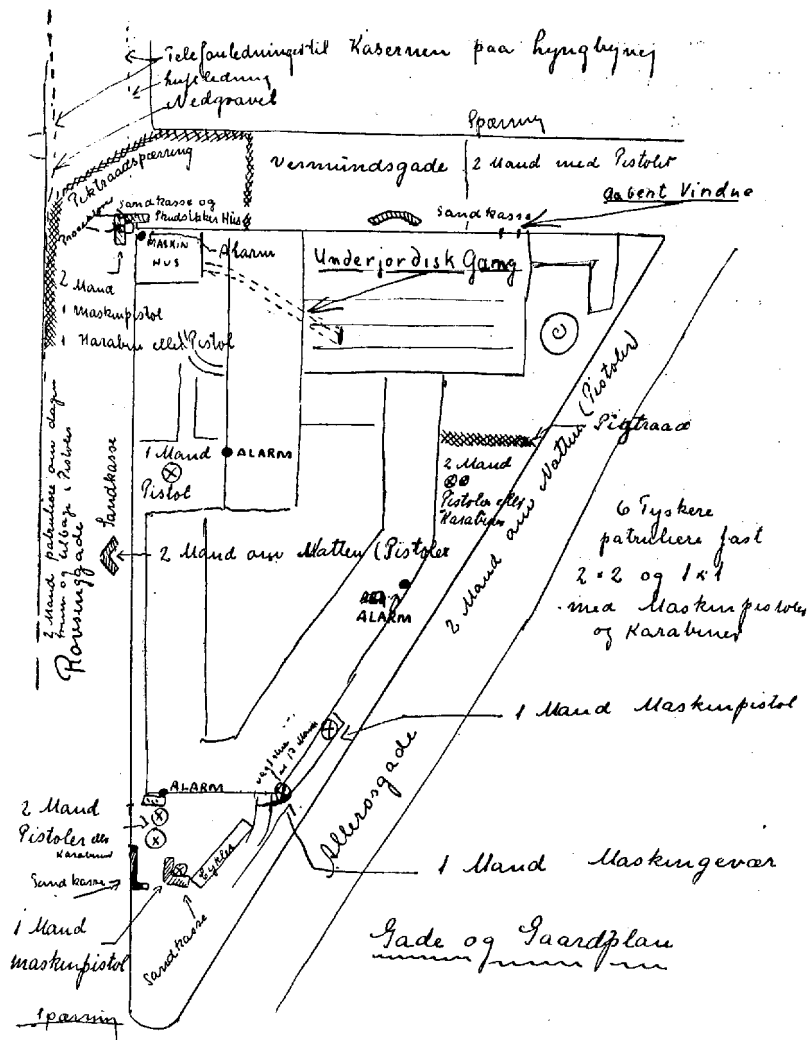 Telefonledningertil Kasernen paa Lyngbyvej
Luftledning
Nedgravet
Spærring
Vermundsgade
2 Mand med Pistoler
Aabent Vindue
Pigtraadspærring
Sandkasse og
Skudsikker Hus
Sandkasse
MASKIN
HUS
Alarm
Underjordisk Gang
2 Mand
1 Maskinpistol
1 Karabine eller Pistol
1 Mand
Pistol
ALARM
Pigtraad
2 Mand
Pistoler eller
Karabiner
2 Mand om Natten (Pistoler
2 Mand patruliere om dagen
frem og tilbage i Pistoler
Rovsinggade
Sandkasse
2 Mand om Natten (Pistoler
6 Tyskere
patruliere fast
2 × 2 og 1 × 1
med Maskinpistoler
og Karabiner
ALARM
1 Mand Maskinpistol
for 12 Mand
ALARM
Allerøsgade
2 Mand
Pistoler eller
Karabiner
Sandkasse
Cykler
1 Mand Maskingevær
1 Mand
maskinpistol
Sandkasse
Gade og Gaardplan
Spærring